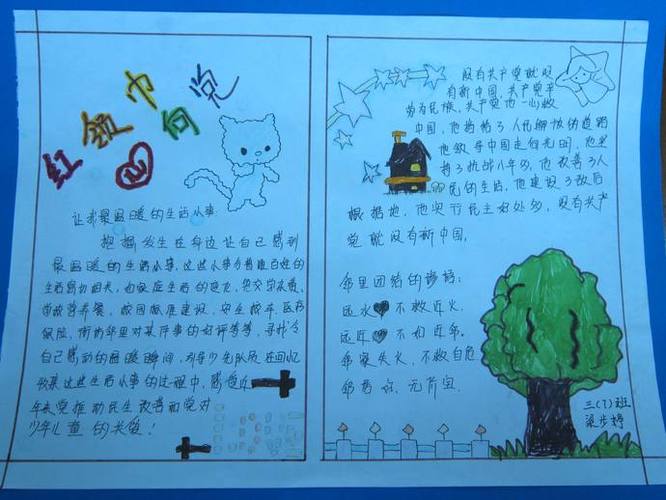 红领巾心向党
让我最温暖的生活小事:
把握发生在身边让自己感到
最温暖的生活小事,这些小事与普通百姓的
生活密切相关,如家庭生活的变化,
营养餐,校园标准建设,安全校车,医药
保险,街坊邻里对某件事的好评等等,寻找令
自己感动的温暖瞬间,引导少先队员在回忆
收集这些生活小事的过程中,感受近
年来党推动民生改善和党对
少年儿童的关爱!
没有共产党就没
有新中国,共产党辛
劳为民族,共产党他一心救
中国,他指给了人民解放的道路
他领导中国走向光明,他坚
持了抗战八年多,他改善了人
民的生活,他建设了敌后
根据地,他实行民主好处多,没有共产
党就没有新中国,
邻里团结的谚语:
远水 不救近火,
远近 不如近邻。
邻家失火,不救自危
三(7)班